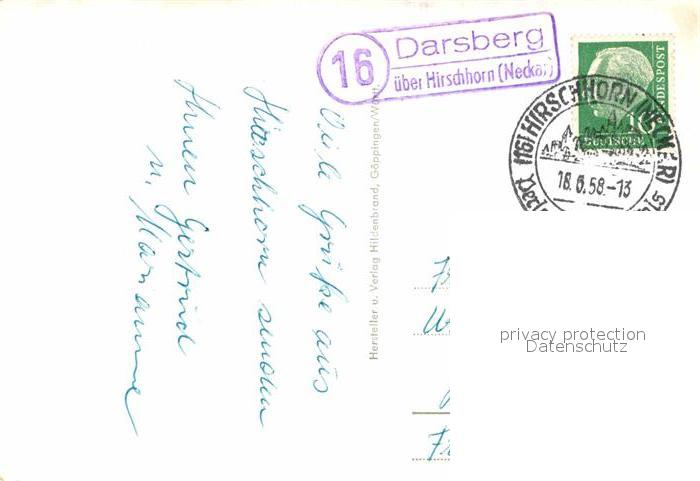 16
Darsberg
über Hirschhorn (Neckar)
BUNDESPOST
10
DEUTSCHE
(16) HIRSCHHORN (NECKAR)
18.6.58.-13
Perle
Viele Grüße aus
Hirschhorn senden
Ihnen Gertrud
u. Marianne
Hersteller u. Verlag Hildenbrand, Göppingen/Württ.
privacy protection
Datenschutz